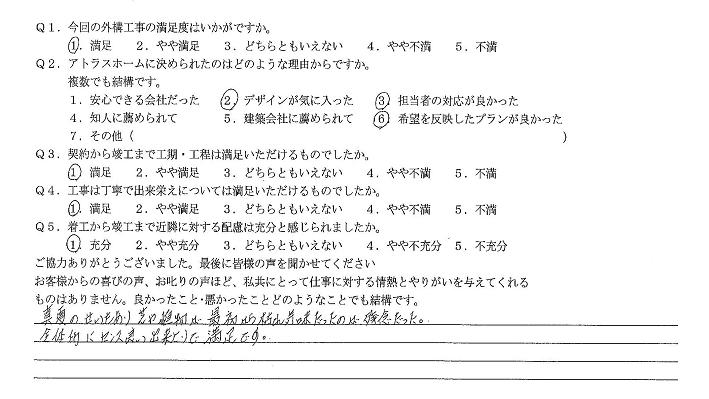 Q1．今回の外構工事の満足度はいかがですか。
①．満足　2．やや満足　3．どちらともいえない　4．やや不満　5．不満
Q2．アトラスホームに決められたのはどのような理由からですか。
複数でも結構です。
1．安心できる会社だった　②．デザインが気に入った　③．担当者の対応が良かった
4．知人に薦められて　5．建築会社に薦められて　⑥．希望を反映したプランが良かった
7．その他（　　　　　　　　　　）
Q3．契約から竣工まで工期・工程は満足いただけるものでしたか。
①．満足　2．やや満足　3．どちらともいえない　4．やや不満　5．不満
Q4．工事は丁寧で出来栄えについては満足いただけるものでしたか。
①．満足　2．やや満足　3．どちらともいえない　4．やや不満　5．不満
Q5．着工から竣工まで近隣に対する配慮は充分と感じられましたか。
①．充分　2．やや充分　3．どちらともいえない　4．やや不充分　5．不充分
ご協力ありがとうございました。最後に皆様の声を聞かせてください
お客様からの喜びの声、お叱りの声ほど、私共にとって仕事に対する情熱とやりがいを与えてくれる
ものはありません。良かったこと・悪かったことどのようなことでも結構です。
真夏のせいもあり 植物は 最初から枯れ気味だったのは 残念だった。
全体的にセンス良い出来 満足です。